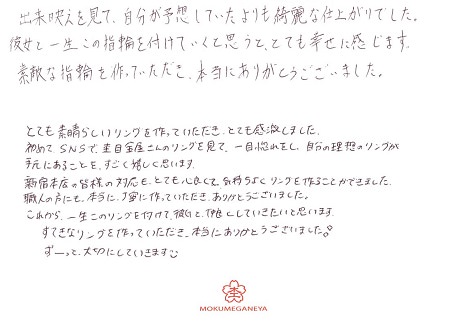 出来映えを見て、自分が予想していたよりも綺麗な仕上がりでした。
彼女と一生この指輪を付けていくと思うと、とても幸せに感じます。
素敵な指輪を作っていただき、本当にありがとうございました。
とても素晴らしいリングを作っていただき、とても感激しました。
初めてSNSで、杢目金屋さんのリングを見て、一目惚れをし、自分の理想のリングが
手元にあることを、すごく嬉しく思います。
新宿本店の皆様の対応も、とても心良くて、気持ちよくリングを作ることができました。
職人の方にも、本当に丁寧に作っていただき、ありがとうございました。
これから、一生このリングを付けて、彼と、していきたいと思います。
すてきなリングを作っていただき、本当にありがとうございました。
ずーっと、大切にしていきます
MOKUMEGANEYA